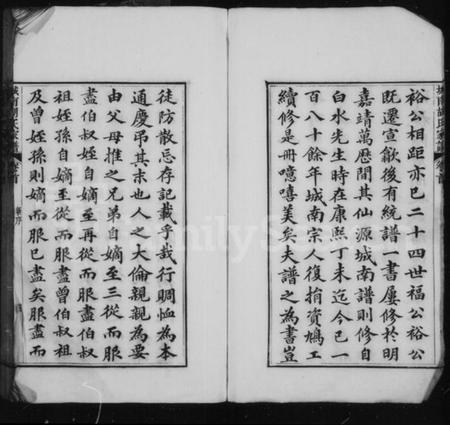 裕公相距亦已二十四世福公裕公
既遷宣歙後有統譜一書屢修於明
嘉靖萬厯間其仙源城南譜則修自
白水先生時在康熙丁未迄今已一
百八十餘年城南宗人復捐資鳩工
續修是冊噫嘻美矣夫譜之為書豈
徒防散忘存記載乎哉行賙恤為本
通慶弔其末也人之大倫親親為要
由父母推之兄弟自嫡至三從而服
盡伯叔姪自嫡至再從而服盡伯叔
祖姪孫自嫡至從而服盡曾伯叔祖
及曾姪孫則嫡而服已盡矣服盡而
城南胡氏家譜
卷首
序
FamilySearch